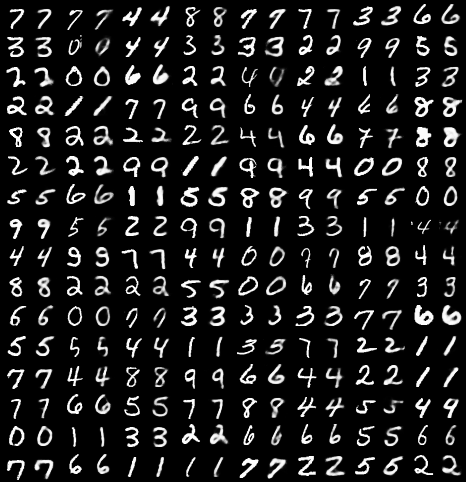 7 7 7 7 4 4 8 8 7 7 7 7 3 3 6 6
3 3 0 0 4 4 3 3 3 3 2 2 9 9 5 5
2 2 0 0 6 6 2 2 4 4 2 2 1 1 3 3
2 2 1 1 7 7 9 9 6 6 4 4 6 6 8 8
8 8 2 2 2 2 2 2 4 4 6 6 7 7 8 8
2 2 2 2 9 9 1 1 9 9 4 4 0 0 8 8
5 5 6 6 1 1 5 5 8 8 9 9 5 5 0 0
9 9 5 5 2 2 9 9 1 1 3 3 1 1 4 4
4 4 9 9 7 7 4 4 0 0 7 7 8 8 4 4
8 8 2 2 2 2 5 5 0 0 6 6 7 7 3 3
6 6 0 0 7 7 3 3 3 3 3 3 7 7 6 6
5 5 5 5 4 4 1 1 3 5 7 7 2 2 1 1
7 7 4 4 8 8 9 9 6 6 4 4 2 2 1 1
7 7 6 6 5 5 7 7 8 8 4 4 5 5 4 9
0 0 1 1 3 3 2 2 6 6 6 6 5 5 6 6
7 7 6 6 1 1 1 1 7 7 2 2 5 6 2 2